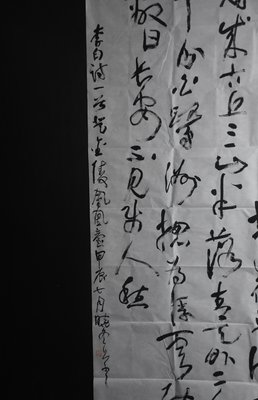 成古丘三山半落青天外二
中分白鷺洲總為浮雲
蔽日長安不見使人愁
李白詩一首登金陵鳳凰臺甲辰七月